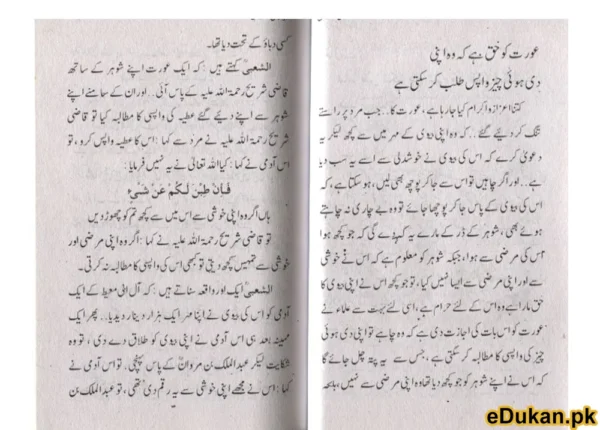 عورت کو حق ہے کہ وہ اپنی
دی ہوئی چیز واپس طلب کر سکتی ہے
کتنا اعزاز و اکرام کیا جا رہا ہے، عورت کا۔۔ جب مرد پر راستے
تنگ کر دیئے گئے۔۔ کہ وہ اپنی بیوی کے مہر میں سے کچھ لیکر یہ
دعویٰ کرے کہ اس کی بیوی نے خوشدلی سے اسے یہ سب دیا
ہے۔۔ اور اگر چاہیں تو اس سے جا کر پوچھ بھی لیں، ہو سکتا ہے، کہ
اس کی بیوی کے پاس جا کر پوچھا جائے تو وہ بے چاری نہ چاہتے
ہوئے بھی، شوہر کے ڈر کے مارے یہ کہہ دے گی کہ جو کچھ ہوا
اس کی مرضی سے ہوا، جبکہ شوہر کو معلوم ہے کہ اس نے خوشی
سے اور اپنی مرضی سے ایسا نہیں کیا، تو جو کچھ اس نے اپنی بیوی کا
حق مارا ہے وہ اس کے لئے حرام ہے، اسی لئے بہت سے علماء نے
عورت کو اس بات کی اجازت دی ہے کہ وہ چاہے تو اپنی دی ہوئی
چیز کی واپسی کا مطالبہ کر سکتی ہے، جس سے یہ پتہ چل جائے گا
کہ اس نے اپنے شوہر کو جو کچھ دیا تھا وہ اپنی مرضی سے نہیں، بلکہ
کسی دباؤ کے تحت دیا تھا۔
الشعبیؒ کہتے ہیں: کہ ایک عورت اپنے شوہر کے ساتھ
قاضی شریح رحمۃ اللہ علیہ کے پاس آئی۔ اور ان کے سامنے اپنے
شوہر سے اپنے دیئے گئے عطیہ کی واپسی کا مطالبہ کیا تو قاضی
شریح رحمۃ اللہ علیہ نے مرد سے کہا: اس کا عطیہ واپس کر دو، تو
اس آدمی نے کہا: کیا اللہ تعالیٰ نے یہ نہیں فرمایا:
فَاِنْ طِبْنَ لَكُمْ عَنْ شَیْءٍ
ہاں اگر وہ اپنی خوشی سے اس میں سے کچھ تم کو چھوڑ دیں
تو قاضی شریح رحمۃ اللہ علیہ نے کہا: اگر وہ اپنی مرضی اور
خوشی سے تمہیں کچھ دیتی تو کبھی اس کی واپسی کا مطالبہ نہ کرتی۔
الشعبیؒ ایک اور واقعہ سناتے ہیں: کہ آل ابی معیط کے ایک
آدمی کو اس کی بیوی نے اپنا مہر ایک ہزار دینار دیدیا۔۔ پھر ایک
مہینہ بعد ہی اس آدمی نے اپنی بیوی کو طلاق دے دی، تو وہ
شکایت لیکر عبدالملک بن مروان کے پاس پہنچی۔ تو اس آدمی نے
کہا: اس نے مجھے اپنی خوشی سے یہ رقم دی تھی، تو عبدالملک بن
eDukan.pk